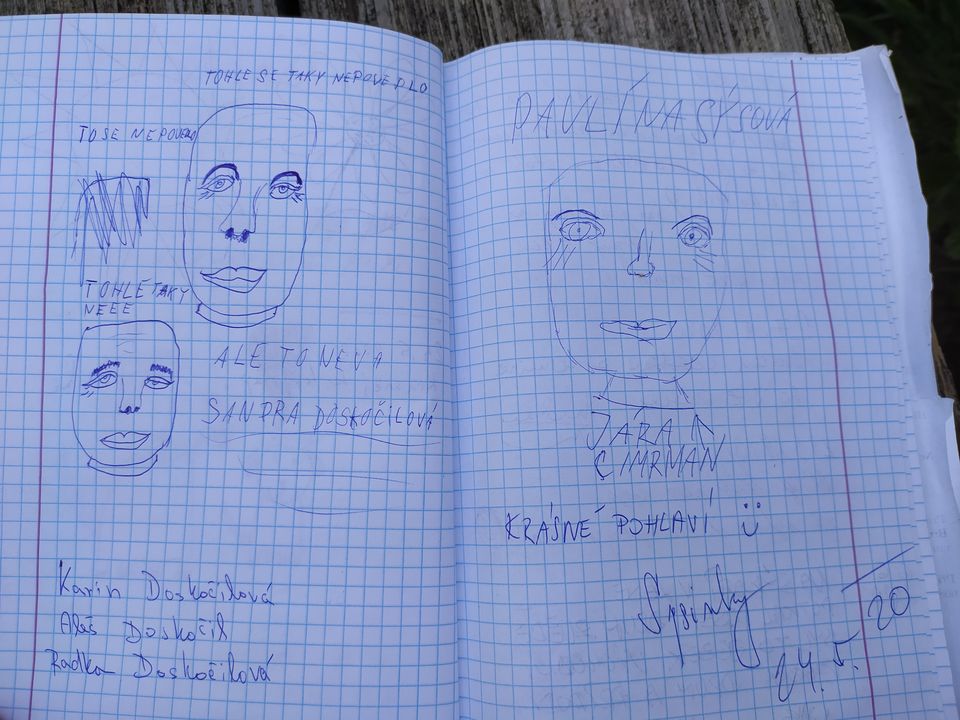 TOHLE SE TAKY NEPOVEDLO
TO SE NEPOVEDLO
TOHLE TAKY
NEEE
ALE TO NEVA
SANDRA DOSKOČILOVÁ
Karin Doskočilová
Aleš Doskočil
Radka Doskočilová
PAVLÍNA SÝSOVÁ
JÁRA
CIMRMAN
KRÁSNÉ POHLAVÍ
24. 5. 20